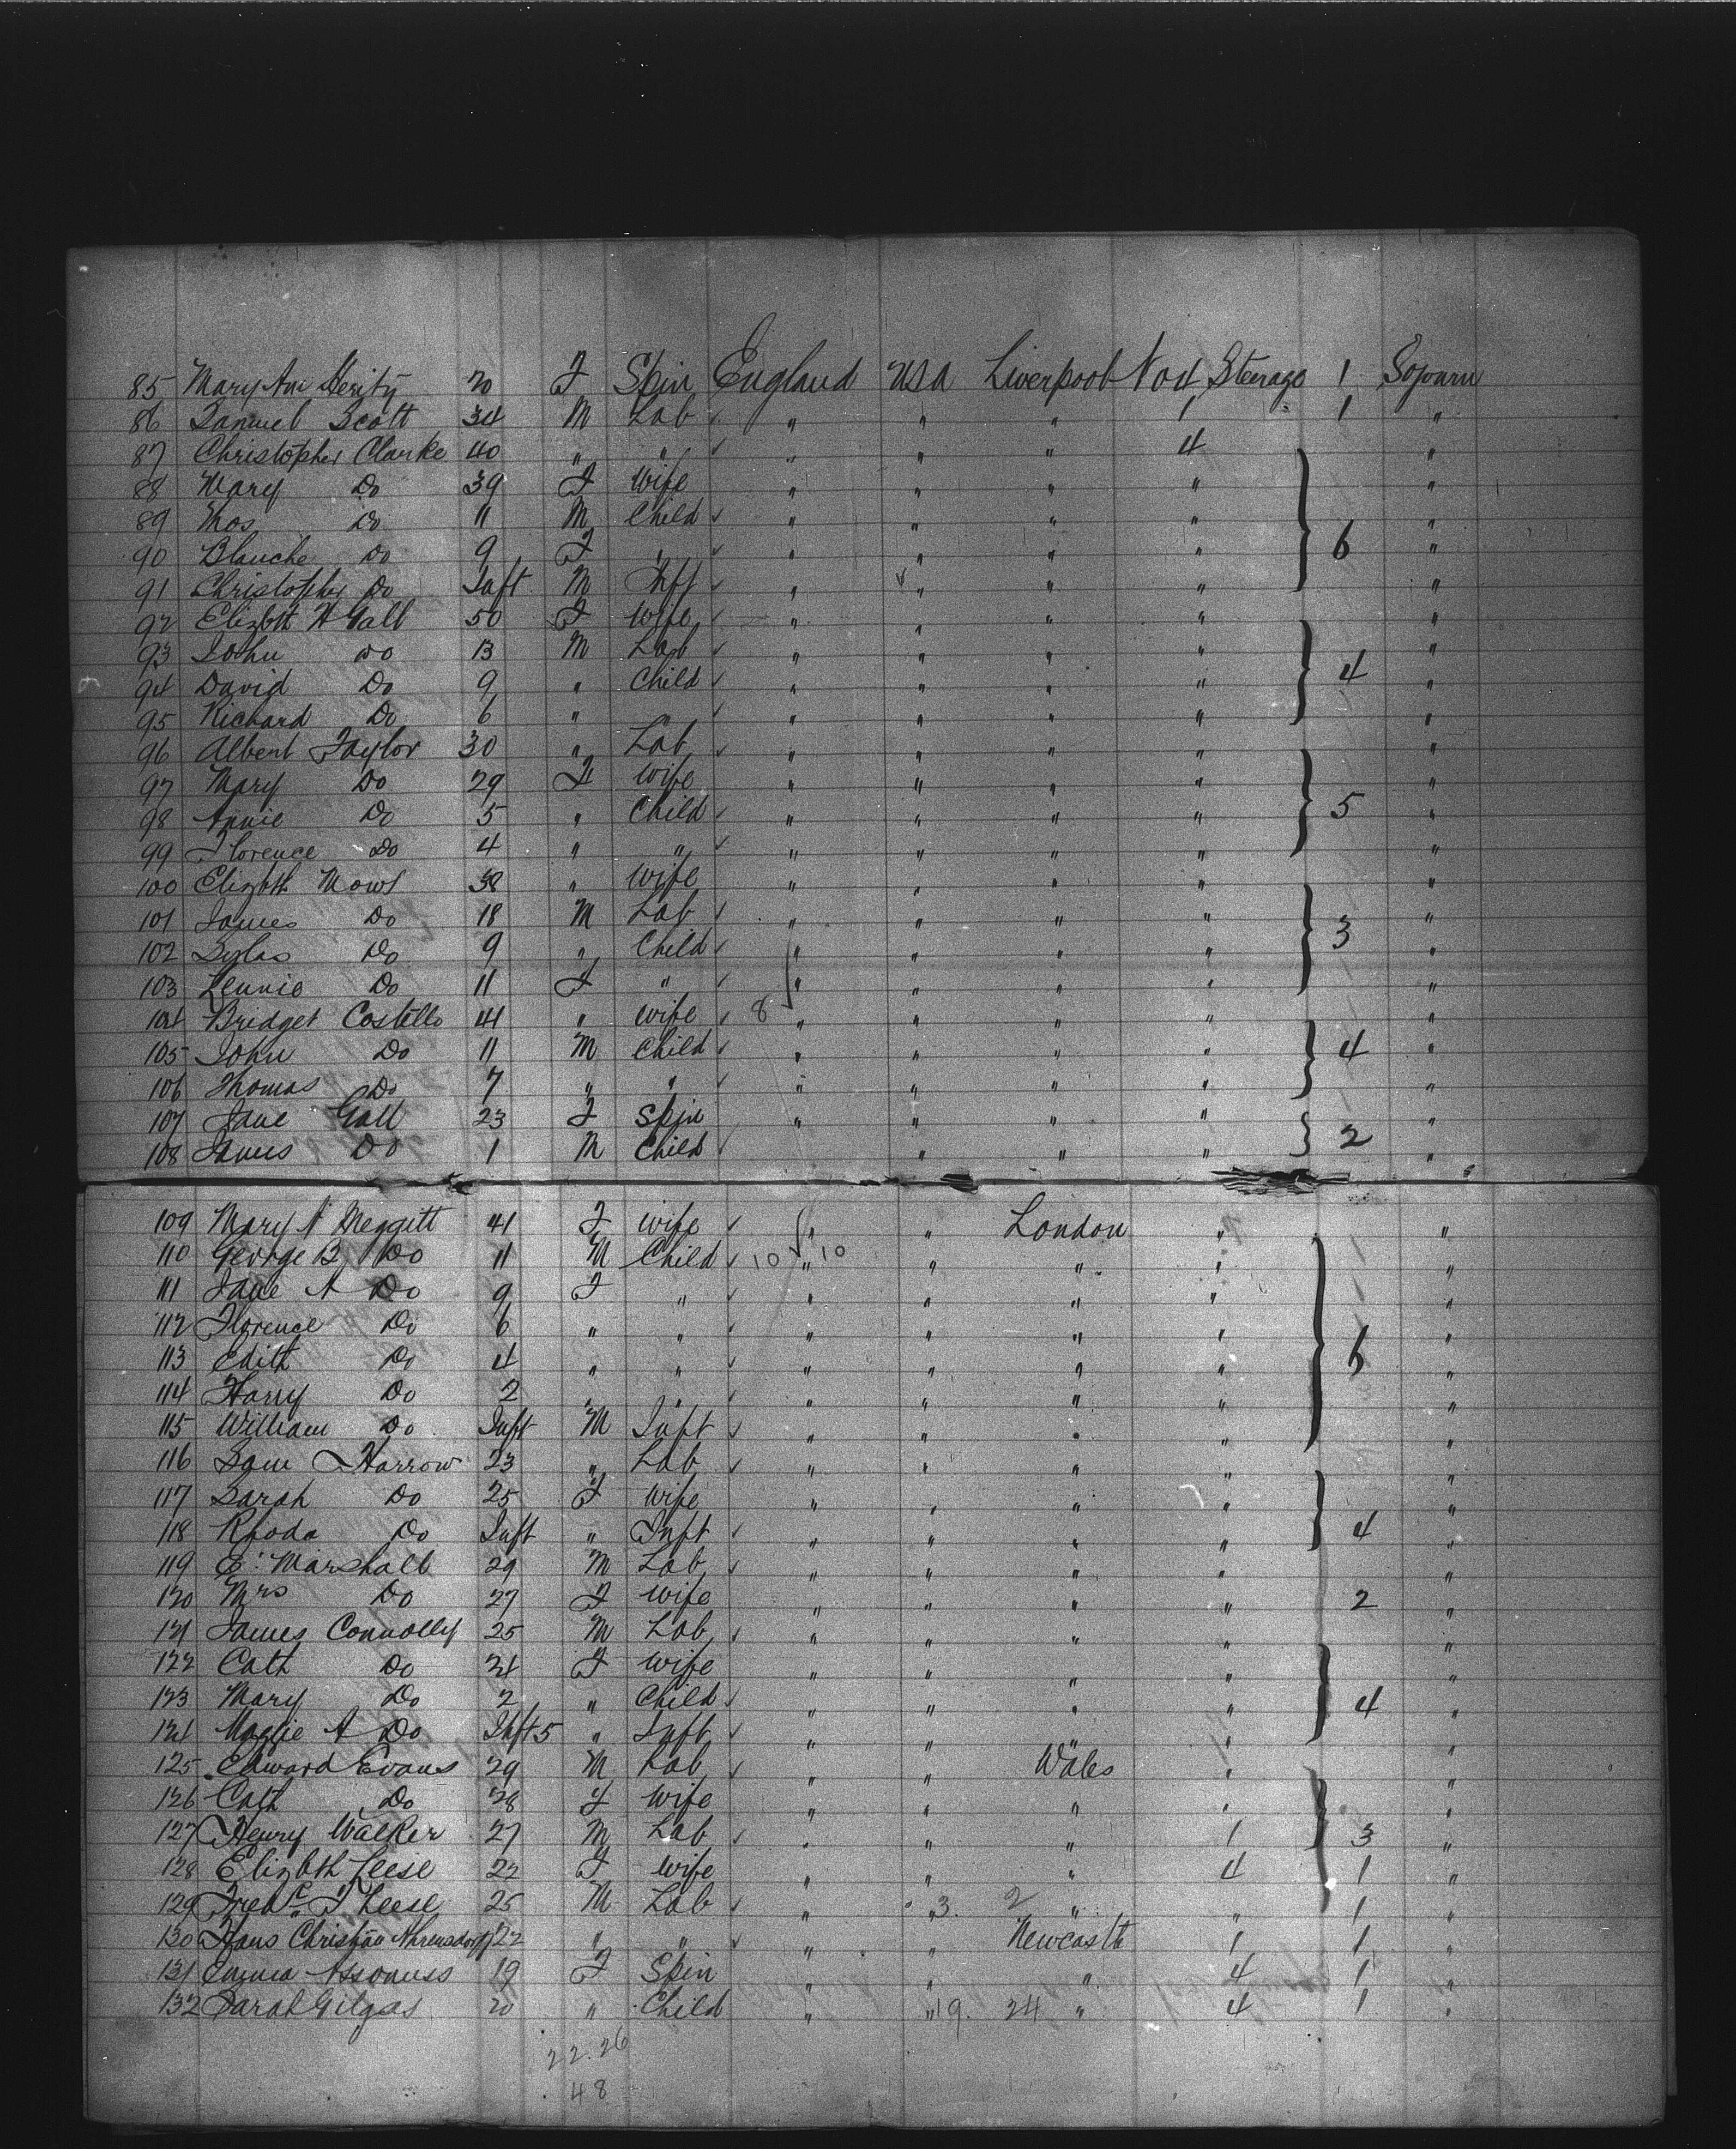 85 Mary Ann Gerity 20 F Spin England USA Liverpool No 4 Steerage 1 Sojourn
86 Samuel Scott 34 M Lab " " " 1 " 1 "
87 Christopher Clarke 40 " " " " " 4 "
88 Mary Do 39 F Wife " " " " "
89 Thos Do 11 M Child " " " " "
90 Blanche Do 9 F " " " " " 6 "
91 Christopher Do Inft M Inft " " " " "
92 Elizbth H Gall 50 F Wife " " " " "
93 John Do 13 M Lab " " " " "
94 David Do 9 " Child " " " " 4 "
95 Richard Do 6 " " " " " "
96 Albert Taylor 30 " Lab " " " " "
97 Mary Do 29 F Wife " " " " "
98 Annie Do 5 " Child " " " " 5 "
99 Florence Do 4 " " " " " " "
100 Elizbth Mowl 38 " Wife " " " " "
101 James Do 18 M Lab " " " " "
102 Sylas Do 9 " Child " " " " 3 "
103 Lennie Do 11 F " " " " " "
104 Bridget Costello 41 " Wife 8 " " " " "
105 John Do 11 M Child " " " " 4 "
106 Thomas Do 7 " " " " " " "
107 Jane Gall 23 F Spin " " " " "
108 James Do 1 M Child " " " 2 "
109 Mary A Meggitt 41 F Wife " " London " "
110 George B Do 11 M Child 10 " 10 " " " "
111 Jane A Do 9 F " " " " " "
112 Florence Do 6 " " " " " " "
113 Edith Do 4 " " " " " " 6 "
114 Harry Do 2 " " " " " " "
115 William Do Inft M Inft " " " " "
116 Sam Harrow 23 " Lab " " " " "
117 Sarah Do 25 F Wife " " " " "
118 Rhoda Do Inft " Inft " " " " 4 "
119 E. Marshall 29 M Lab " " " " "
120 Mrs Do 27 F Wife " " " " 2 "
121 James Connolly 25 M Lab " " " "
122 Cath Do 24 F Wife " " " " "
123 Mary Do 2 " Child " " " " 4 "
124 Maggie A Do Inft 5 " Inft " " " " "
125 Edward Evans 29 M Lab " " Wales " "
126 Cath Do 28 F Wife " " " " "
127 Henry Walker 27 M Lab " " " 1 3 "
128 Elizbth Leese 22 F Wife " " " 4 1 "
129 Fredc T Leese 25 M Lab " " 3. 2 " " 1 "
130 Hans Christian Ahrensdorf 22 " " " " Newcastle 1 1 "
131 Emma Assonuss 19 F Spin " " " 4 1 "
132 Sarah Gilgas 20 " Child " " 19. 24 " 4 1 "
22. 26
48